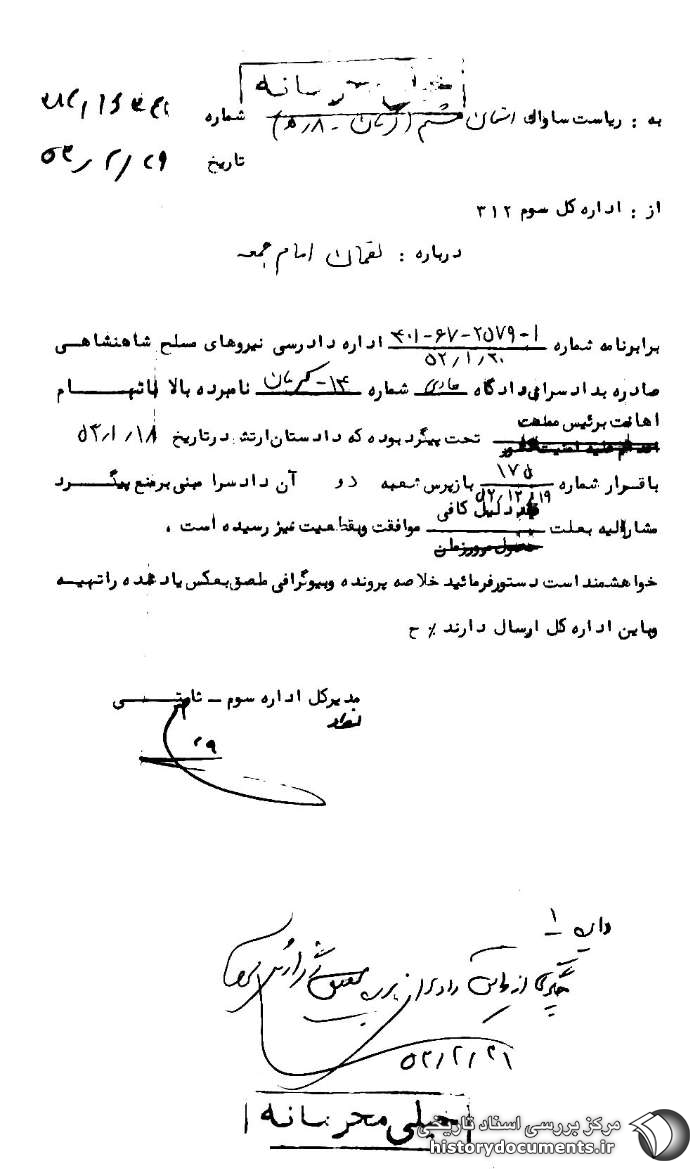 خیلی محرمانه
به : ریاست ساواک استان هشتم (کرمان - ۸ ه) شماره
تاریخ ۵۳/۲/۲۹
از : اداره کل سوم ۳۱۲
درباره : لقمان امام جمعه
برابرنامه شماره ۱-۲۵۷۹-۶۷-۴۰۱ اداره دادرسی نیروهای مسلح شاهنشاهی
۵۲/۱/۲۰
صادره بدادسرای دادگاه عادی شماره ۱۴- کرمان نامبرده بالا باتهام
اهانت برئیس مملکت
اقدام علیه امنیت کشور تحت پیگرد بوده که دادستان ارتش در تاریخ ۵۳/۱/۱۸
باقرار شماره ۱۷۵ بازپرس شعبه دو آن دادسرا مبنی بر منع پیگرد
۵۲/۱۲/۱۹
دلیل کافی
مشارالیه بعلت موافقت وبقطعیت نیز رسیده است .
حصول مرور زمان
خواهشمند است دستور فرمائید خلاصه پرونده وبیوگرافی ملصق بعکس یاد شده را تهیه
وباین اداره کل ارسال دارند ٪ ح
مدیرکل اداره سوم – ثابتی
۲۹
۱
۵۳/۲/۳۱
خیلی محرمانه
مرکز بررسی اسناد تاریخی
historydocuments.ir